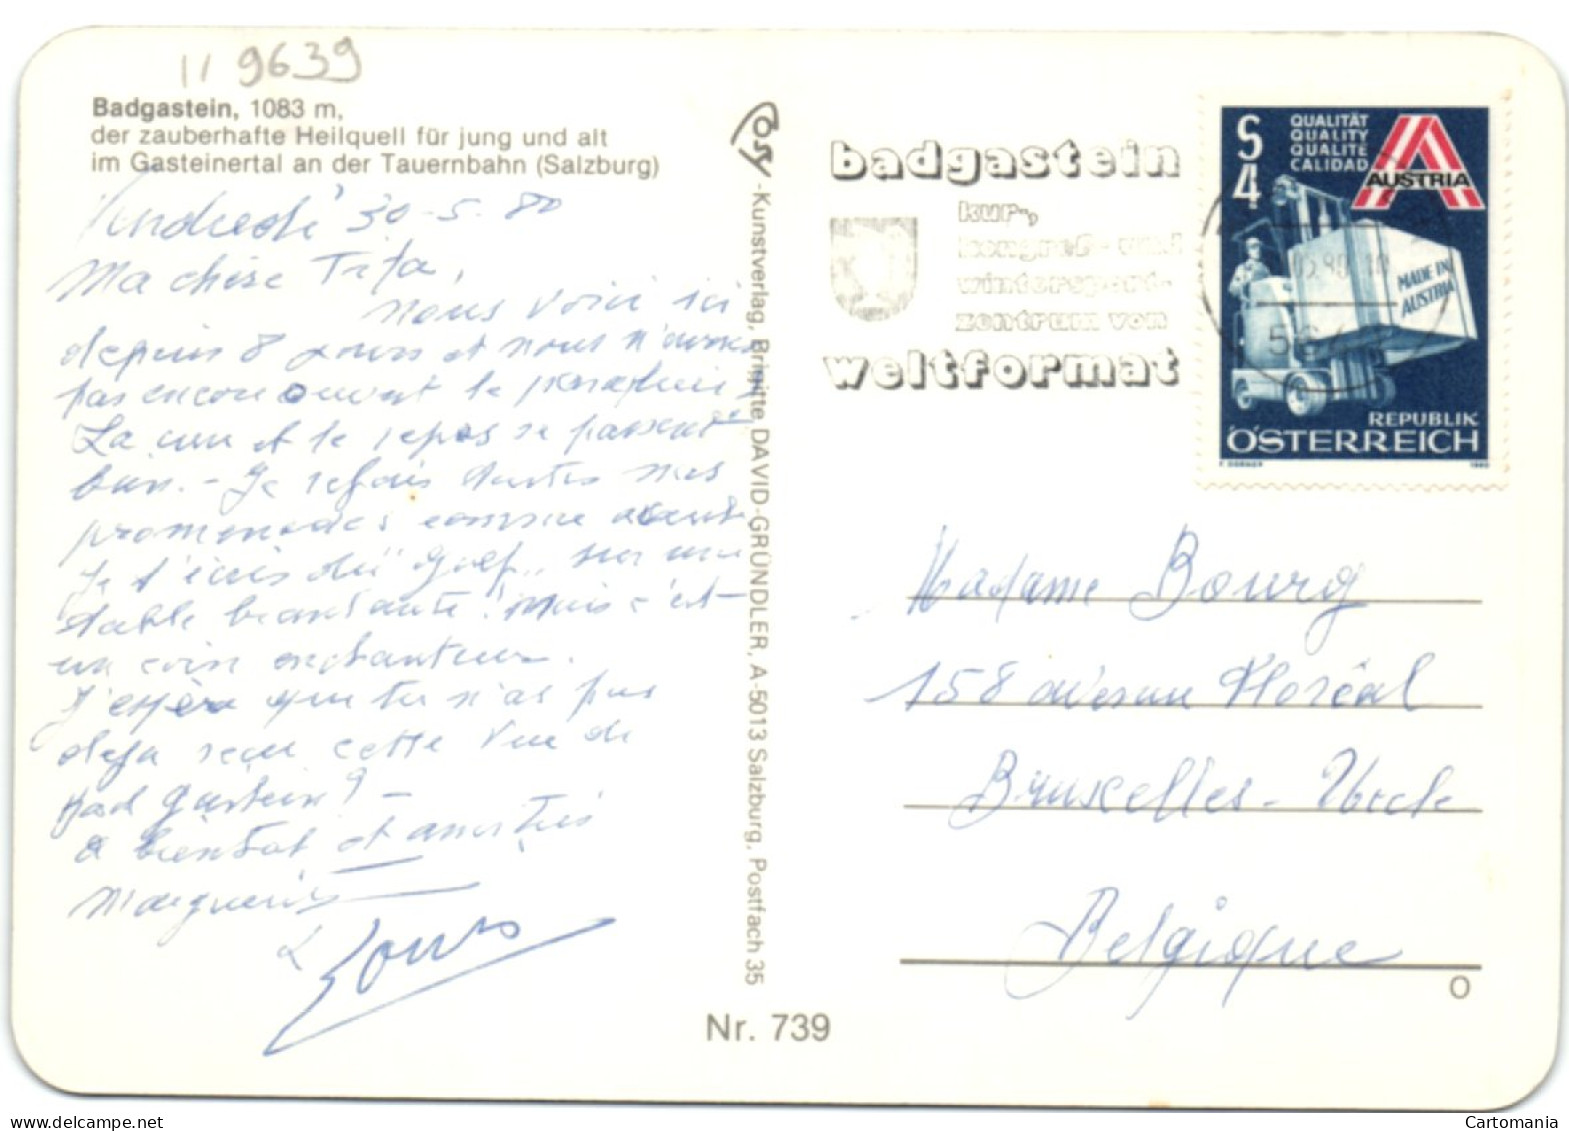 11 9639
Badgastein, 1083 m,
der zauberhafte Heilquell für jung und alt
im Gasteinertal an der Tauernbahn (Salzburg)
Vendredi 30-5-80
Ma chère Tita,
Nous voici ici
depuis 8 jours et nous n'avons
pas encore ouvert le parapluie
La cure et le repos se passent
bien. - Je refais toutes mes
promenades comme avant
Je t'écris du Golf, sur une
table branlante! Mais c'est
un coin enchanteur.
J'espère que tu n'as pas
déjà reçu cette vue de
Bad Gastein? -
à bientôt et amitiés
Marguerite
Cosy -Kunstverlag, Brigitte DAVID-GRÜNDLER, A-5013 Salzburg, Postfach 35
Nr. 739
badgastein
kur-,
kongreß- und
wintersport-
zentrum von
weltformat
S 4
QUALITÄT
QUALITY
QUALITÉ
CALIDAD
AUSTRIA
MADE IN
AUSTRIA
REPUBLIK
ÖSTERREICH
1980
Madame Bourg
158 avenue Floréal
Bruxelles - Uccle
Belgique
O
Cartomania
delcampe.net